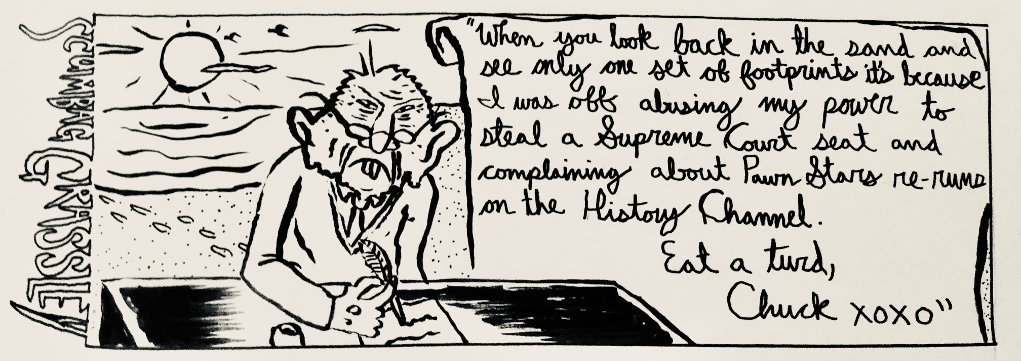 SCUMBAG GRASSLEY
"When you look back in the sand and
see only one set of footprints it's because
I was off abusing my power to
steal a Supreme Court seat and
complaining about Pawn Stars re-runs
on the History Channel.
Eat a turd,
Chuck xoxo"